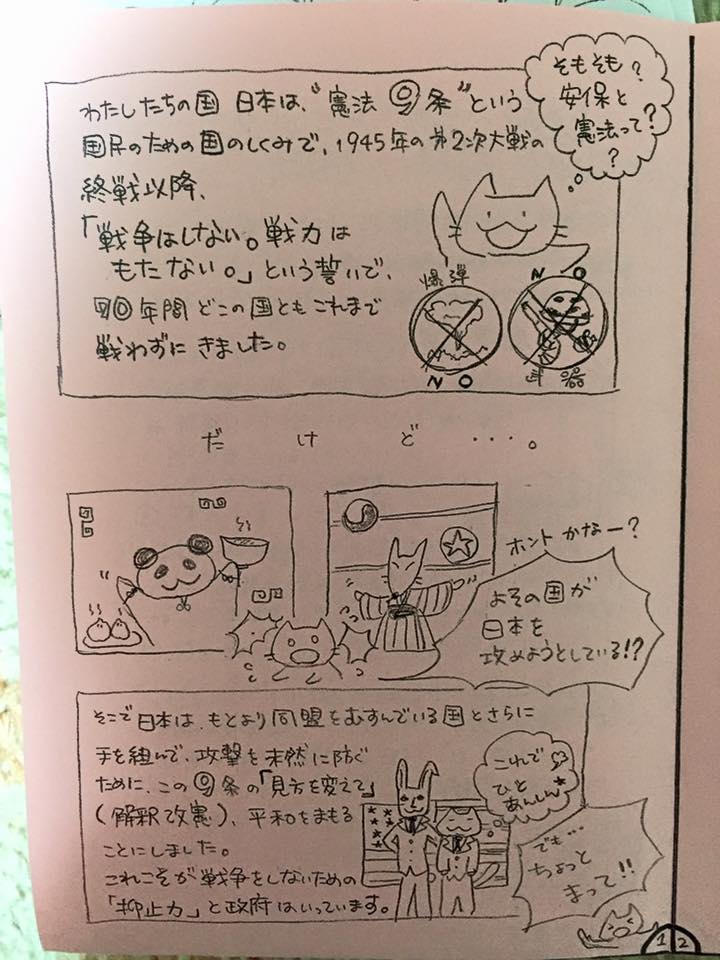 そもそも?
安保と
憲法って?
?
わたしたちの国 日本は、“憲法 9 条”という
国民のための国のしくみで、1945年の第2次大戦の
終戦以降、
「戦争はしない。戦力は
もたない。」という誓いで、
70年間 どこの国とも これまで
戦わずに きました。
爆弾
NO
NO
武器
だけど・・・。
ホントかなー?
よその国が
日本を
攻めようとしている!?
そこで日本は、もとより同盟をむすんでいる国とさらに
手を組んで、攻撃を未然に防ぐ
ために、この9条の「見方を変えて」
(解釈改憲)、平和をまもる
ことにしました。
これこそが戦争をしないための
「抑止力」と政府はいっています。
これで
ひと
あんしん
でも…
ちょっと
まって!!
1 2